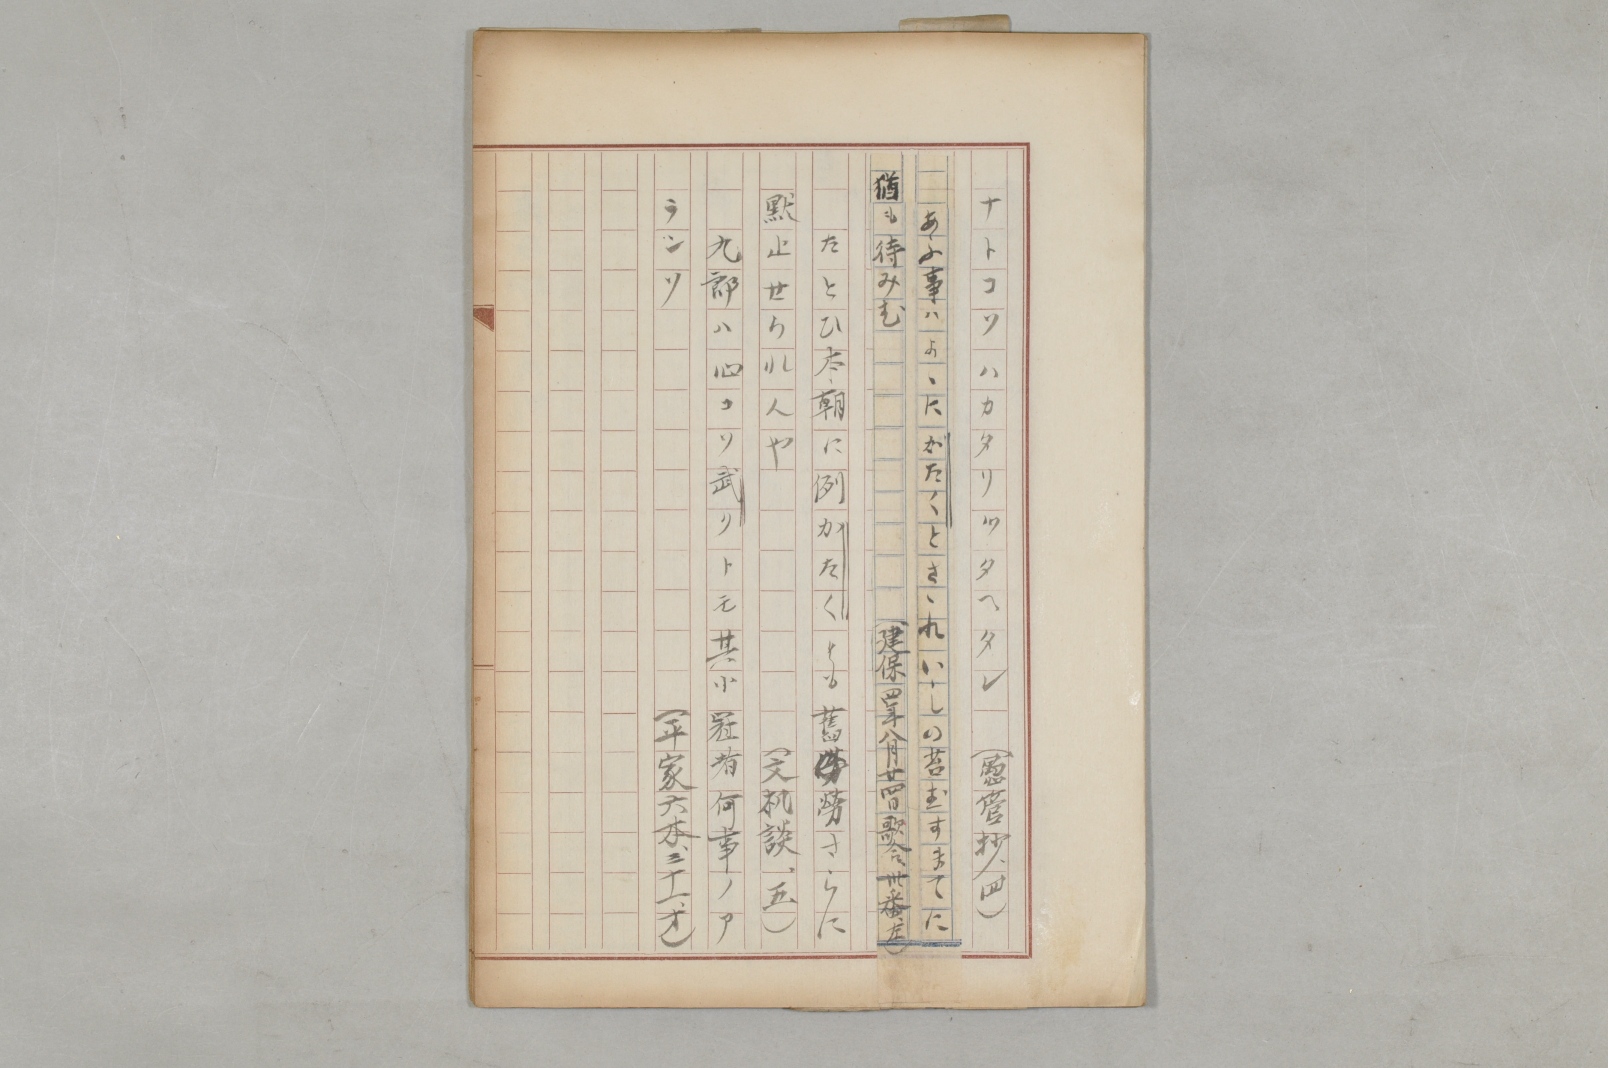 ナトコソハカタリツタヘタレ（愚管抄、四）
あふ事はよゝにがたくとさゝれいしの苔むすまてに
猶も待みむ（建保四年八月廿四日歌合、卅番、左）
たとひ本朝に例がたくとも舊勞さらに
默止せられんや（文机談、五）
九郎ハ心コソ武クトモ其小冠者何事ノア
ランソ（平家六本、三十一、オ）